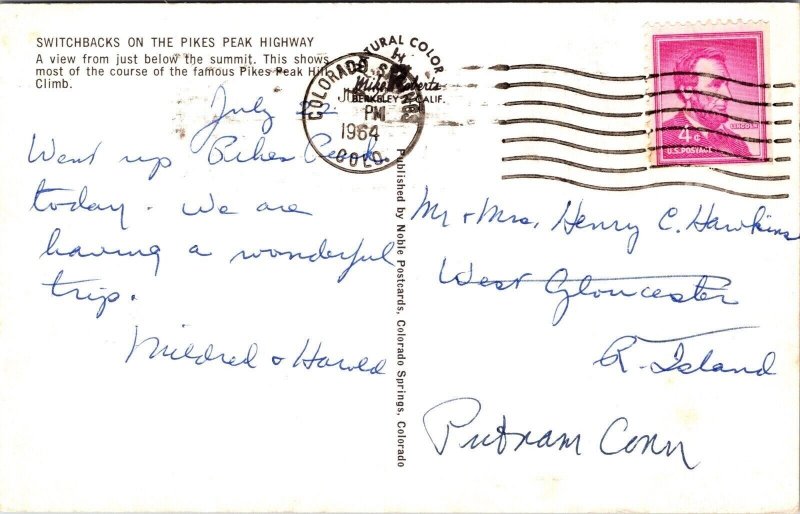 SWITCHBACKS ON THE PIKES PEAK HIGHWAY
A view from just below the summit. This shows
most of the course of the famous Pikes Peak Hill
Climb.
July 22
Went up Pikes Peak
today. We are
having a wonderful
trip.
Mildred & Harold
Published by Noble Postcards, Colorado Springs, Colorado
NATURAL COLOR
Mike Roberts
BERKELEY 2, CALIF.
COLORADO SPRINGS
PM
1964
COLO.
4¢
LINCOLN
U.S. POSTAGE
Mr & Mrs. Henry C. Hawkins
West Gloucester
R. Island
Putnam Conn